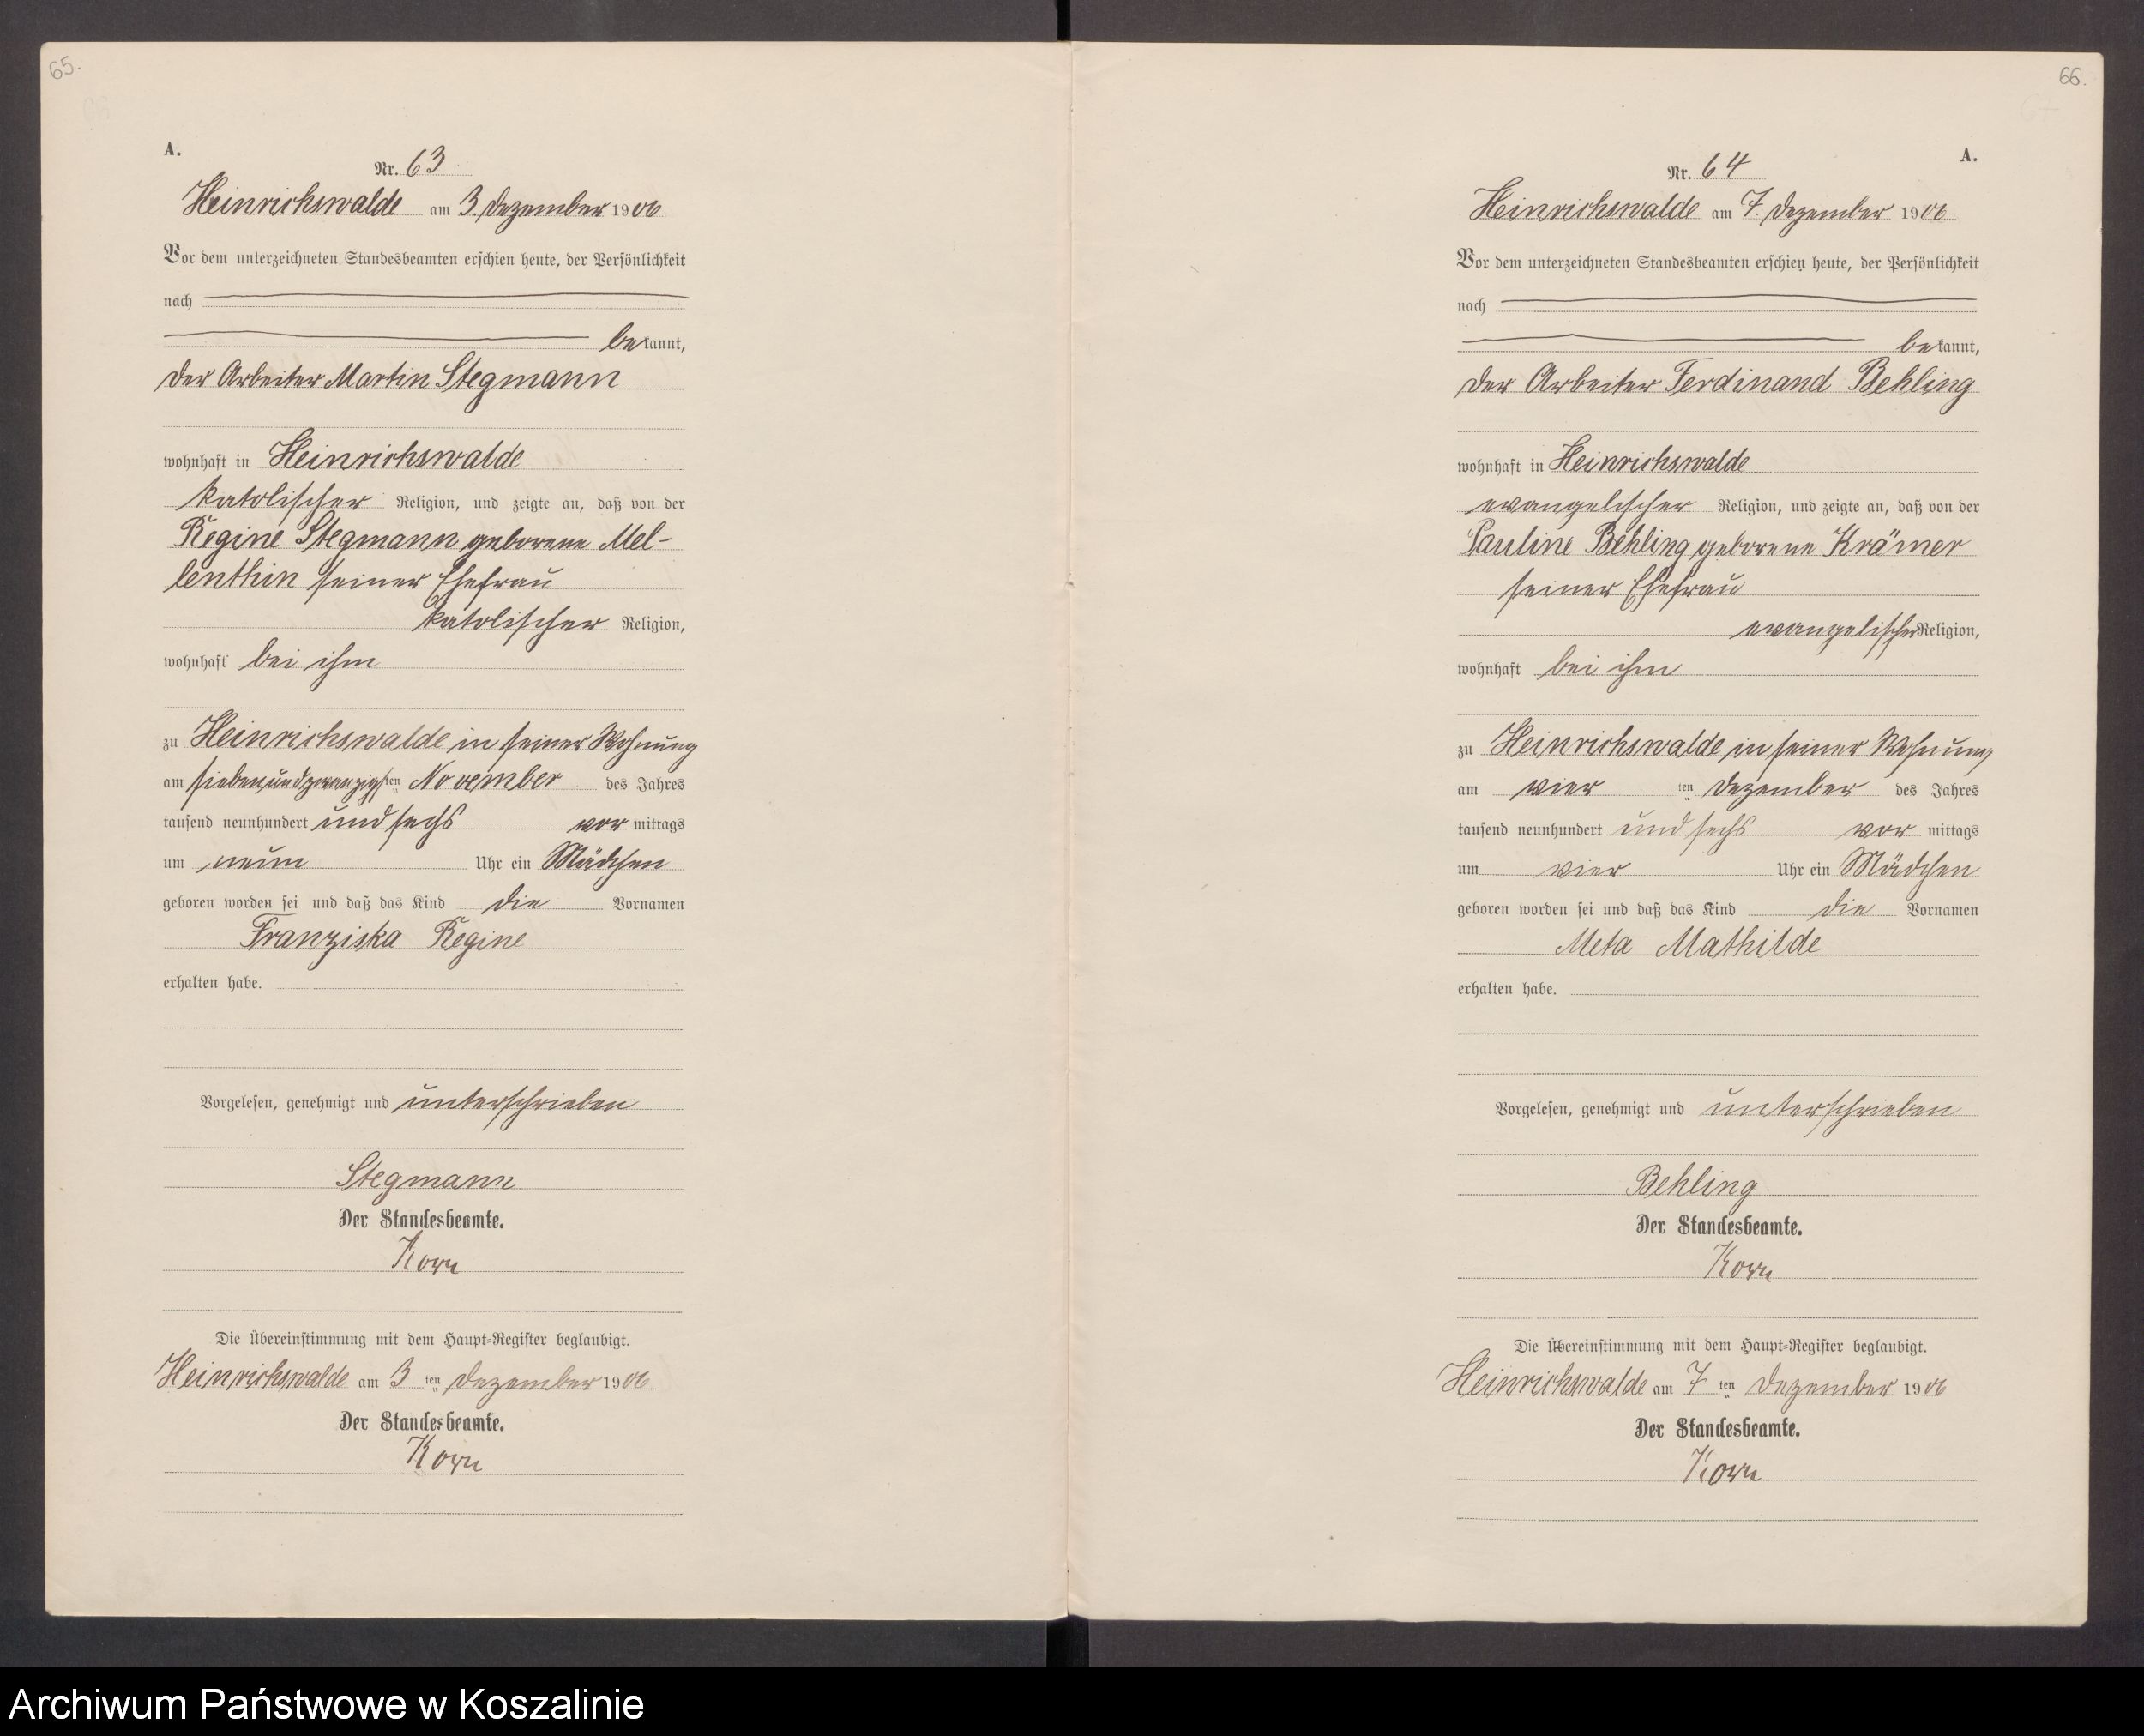 65.
A.
Nr. 63
Heinrichswalde am 3. Dezember 1906
Vor dem unterzeichneten Standesbeamten erschien heute, der Persönlichkeit
nach
bekannt,
der Arbeiter Martin Stegmann
wohnhaft in Heinrichswalde
katolischer Religion, und zeigte an, daß von der
Regine Stegmann geborene Mel-
lenthin seiner Ehefrau
katolischer Religion,
wohnhaft bei ihm
zu Heinrichswalde in seiner Wohnung
am siebenundzwanzigsten November des Jahres
tausend neunhundert und sechs vor mittags
um neun Uhr ein Mädchen
geboren worden sei und daß das Kind die Vornamen
Franziska Regine
erhalten habe.
Vorgelesen, genehmigt und unterschrieben
Stegmann
Der Standesbeamte.
Korn
Die Übereinstimmung mit dem Haupt-Register beglaubigt.
Heinrichswalde am 3 ten Dezember 1906
Der Standesbeamte.
Korn
66.
A.
Nr. 64
Heinrichswalde am 7. Dezember 1906
Vor dem unterzeichneten Standesbeamten erschien heute, der Persönlichkeit
nach
bekannt,
der Arbeiter Ferdinand Behling
wohnhaft in Heinrichswalde
evangelischer Religion, und zeigte an, daß von der
Pauline Behling geborene Krämer
seiner Ehefrau
evangelischer Religion,
wohnhaft bei ihm
zu Heinrichswalde in seiner Wohnung
am vier ten Dezember des Jahres
tausend neunhundert und sechs vor mittags
um vier Uhr ein Mädchen
geboren worden sei und daß das Kind die Vornamen
Meta Mathilde
erhalten habe.
Vorgelesen, genehmigt und unterschrieben
Behling
Der Standesbeamte.
Korn
Die Übereinstimmung mit dem Haupt-Register beglaubigt.
Heinrichswalde am 7 ten Dezember 1906
Der Standesbeamte.
Korn
Archiwum Państwowe w Koszalinie